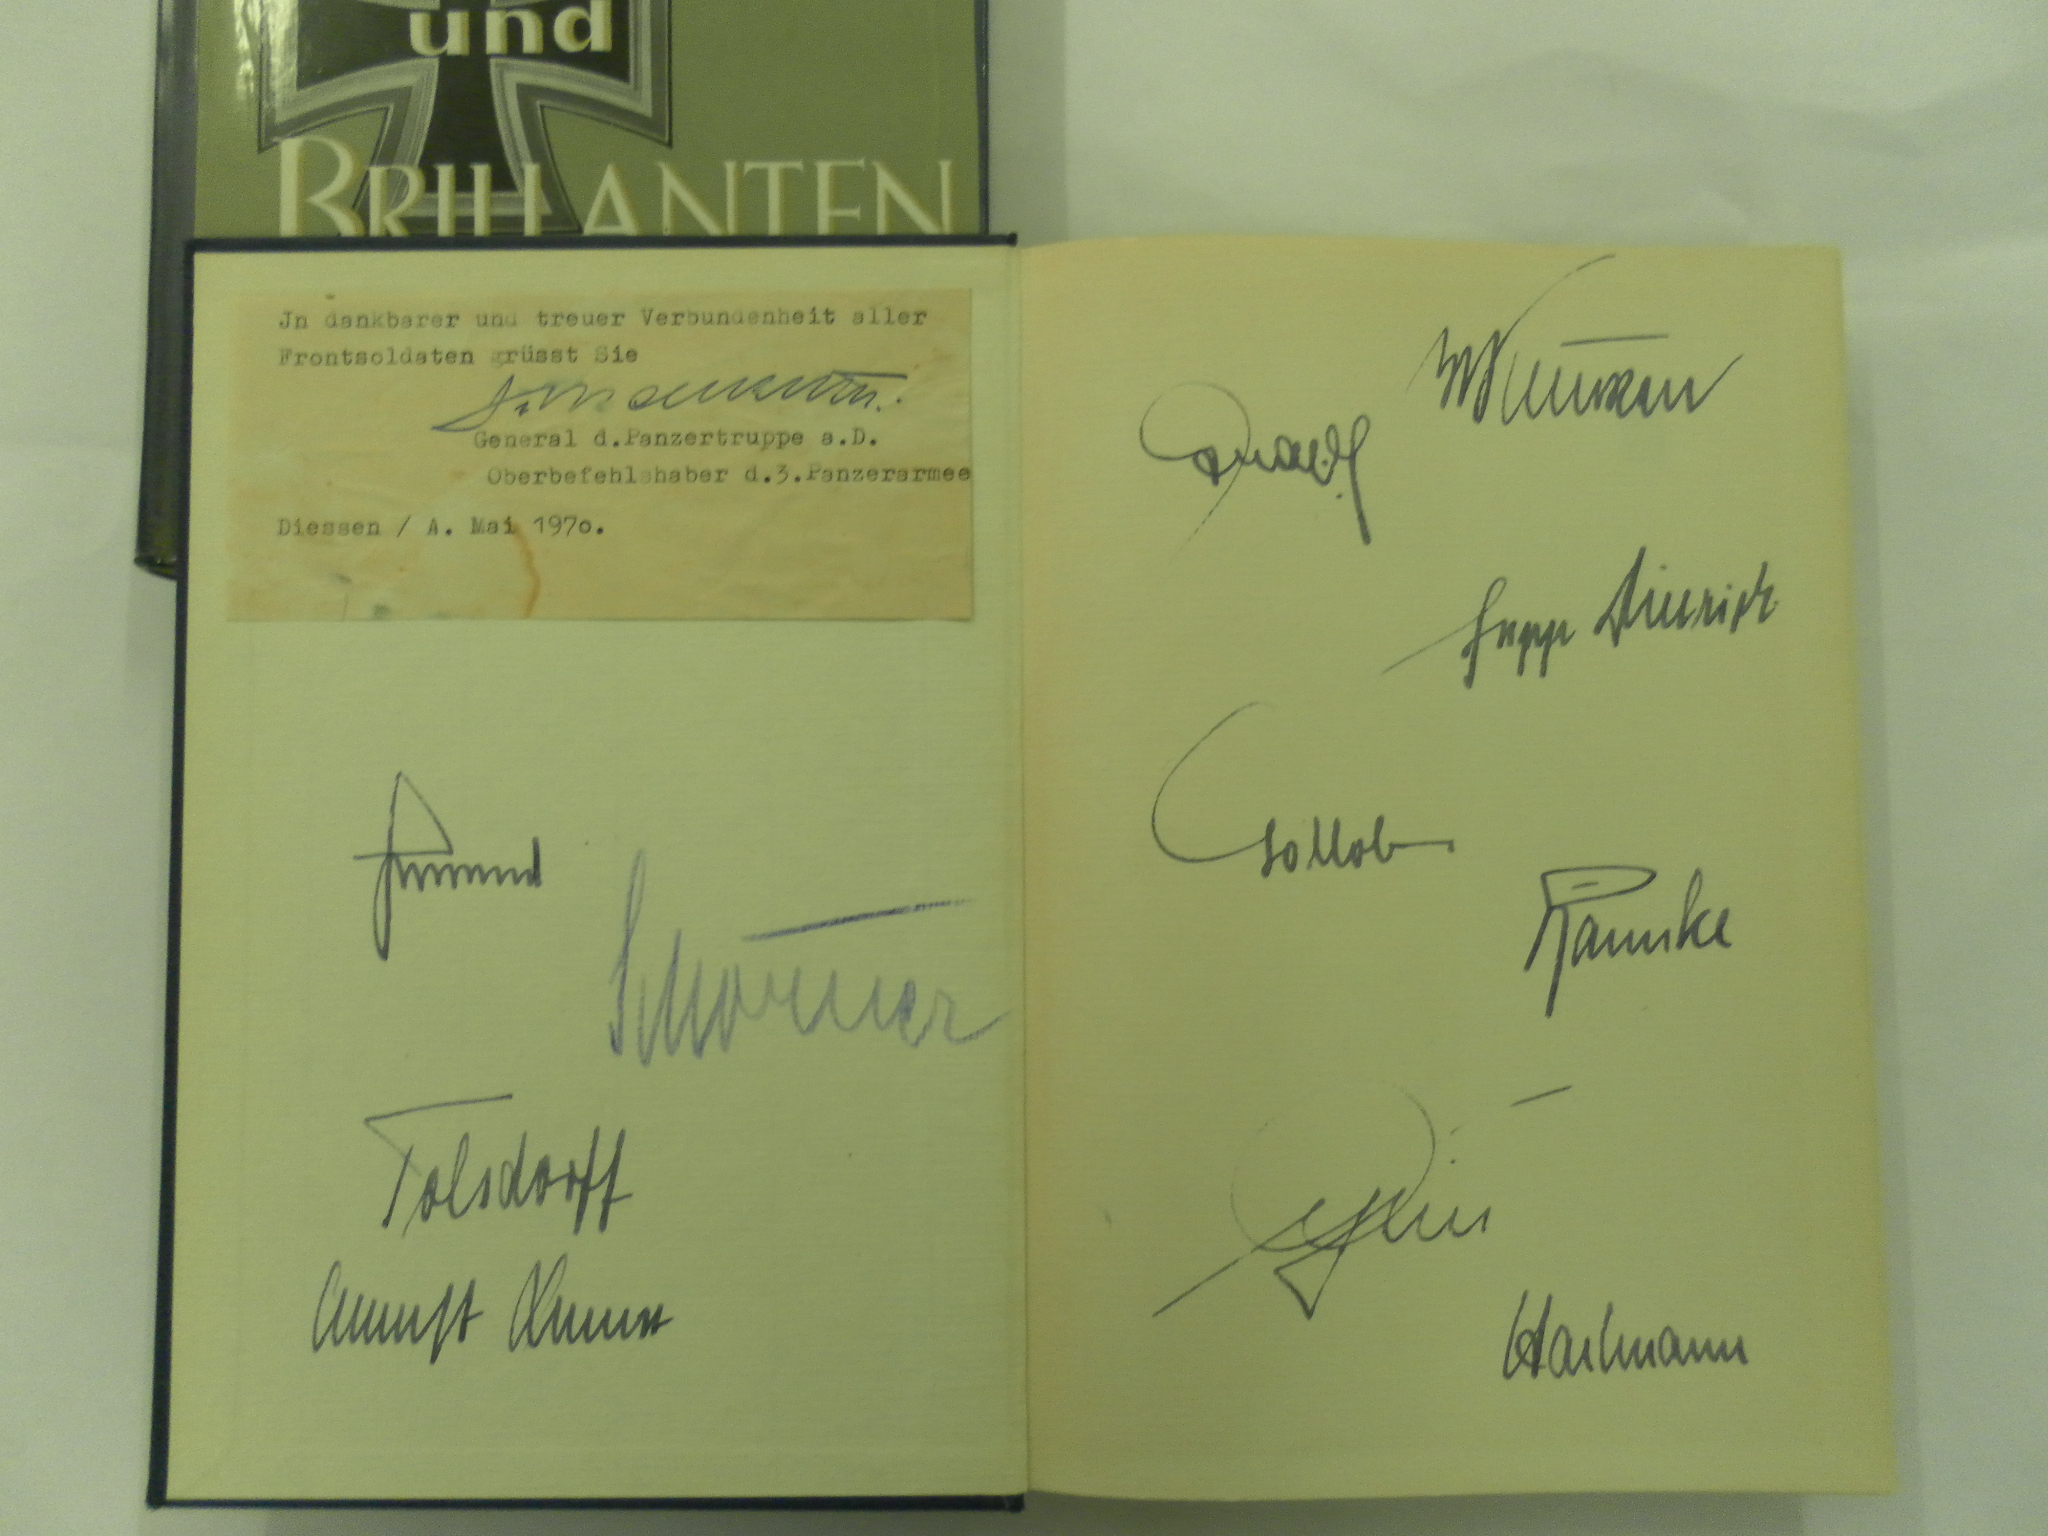 und
BRILLANTEN
Jn dankbarer und treuer Verbundenheit aller
Frontsoldaten grüsst Sie
General d.Panzertruppe a.D.
Oberbefehlshaber d.3.Panzerarmee
Diessen / A. Mai 1970.
Schörner
Tolsdorff
Sepp Dietrich
Gollob
Ramcke
Hartmann